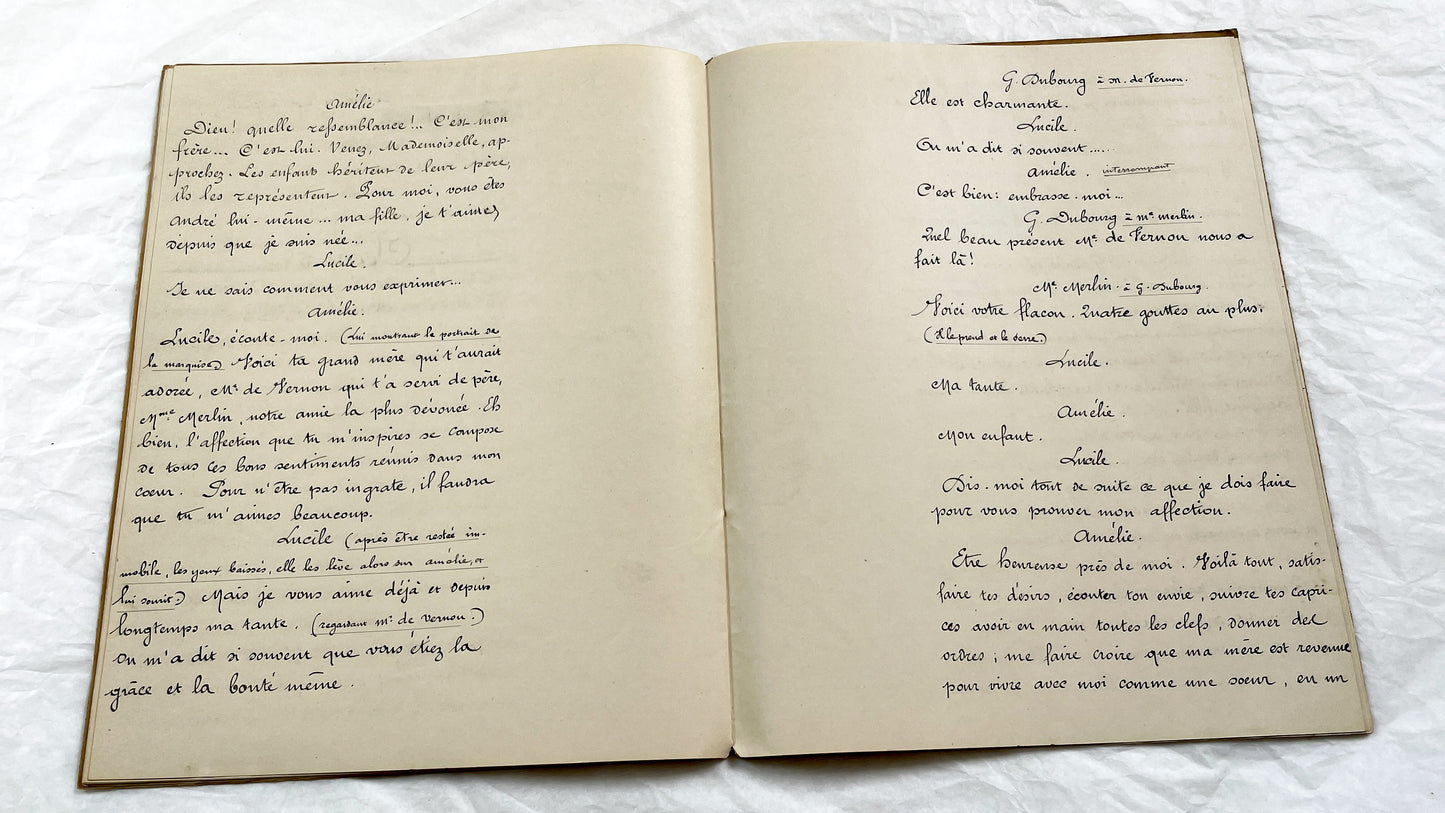 Amélie
Dieu! quelle ressemblance!.. C'est mon
frère... C'est lui. Venez, Mademoiselle, ap-
prochez. Les enfants héritent de leur père,
ils les représentent. Pour moi, vous êtes
André lui-même... ma fille, je t'aime
depuis que je suis née...
Lucile.
Je ne sais comment vous exprimer...
Amélie.
Lucile, écoute-moi. (Lui montrant le portrait de
la marquise) Voici ta grand mère qui t'aurait
adorée, Mr de Vernon qui t'a servi de père,
Mme Merlin, notre amie la plus dévouée. Eh
bien, l'affection que tu m'inspires se compose
de tous ces bons sentiments réunis dans mon
coeur. Pour n'être pas ingrate, il faudra
que tu m'aimes beaucoup.
Lucile (après être restée im-
mobile, les yeux baissés, elle les lève alors sur amélie, et
lui sourit.) Mais je vous aime déjà et depuis
longtemps ma tante. (regardant mr de Vernon.)
On m'a dit si souvent que vous étiez la
grâce et la bonté même.
G. Dubourg à m. de Vernon.
Elle est charmante.
Lucile.
On m'a dit si souvent......
Amélie. interrompant
C'est bien: embrasse-moi...
G. Dubourg à me merlin.
Quel beau présent Mr de Vernon nous a
fait là!
Me Merlin. à G. Dubourg.
Voici votre flacon. Quatre gouttes au plus.
(Il le prend et le serre.)
Lucile.
Ma tante.
Amélie.
Mon enfant.
Lucile.
Dis-moi tout de suite ce que je dois faire
pour vous prouver mon affection.
Amélie.
Etre heureuse près de moi. Voilà tout, satis-
faire tes désirs, écouter ton envie, suivre tes capri-
ces avoir en main toutes les clefs, donner des
ordres; me faire croire que ma mère est revenue
pour vivre avec moi comme une soeur, en un